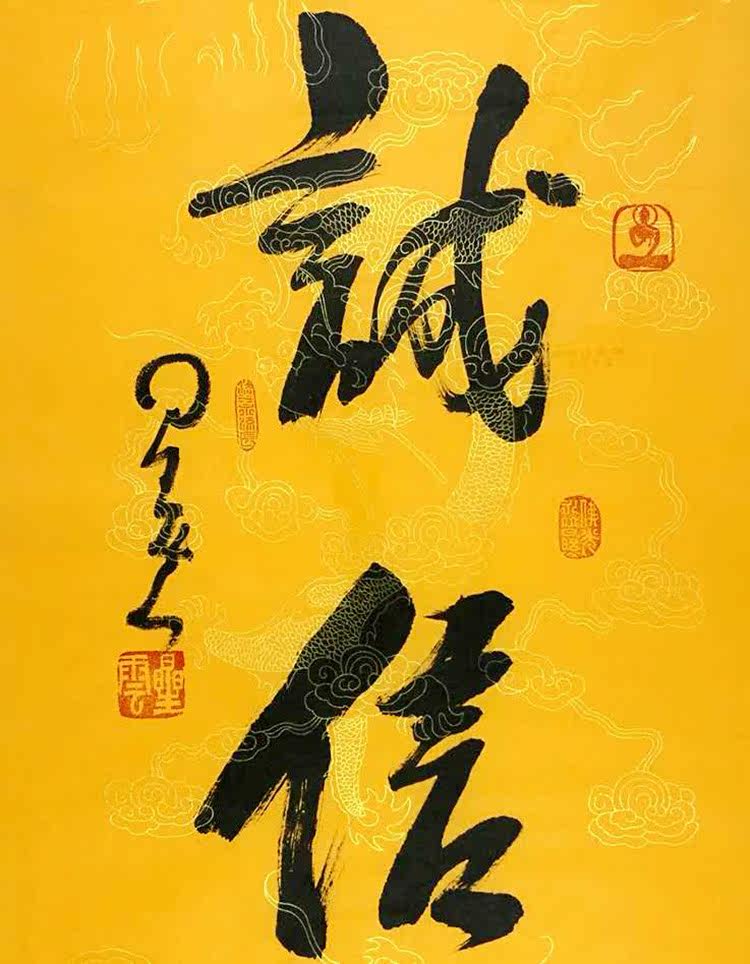 誠信
星雲
星雲